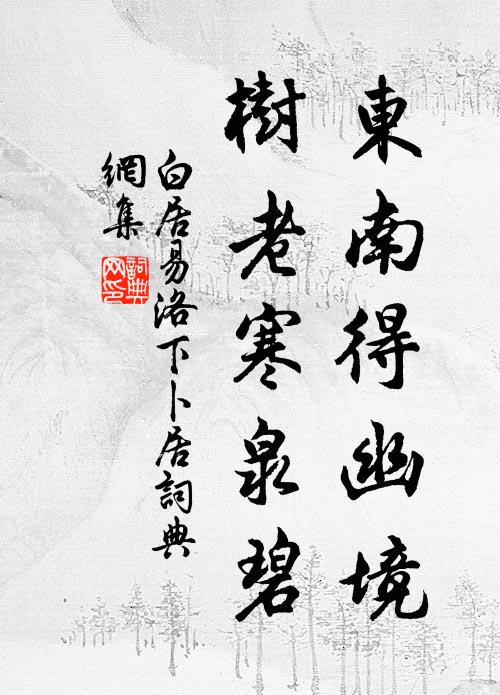 東南得幽境
樹老寒泉碧
白居易洛下卜居詞典
網集
詞典
网印